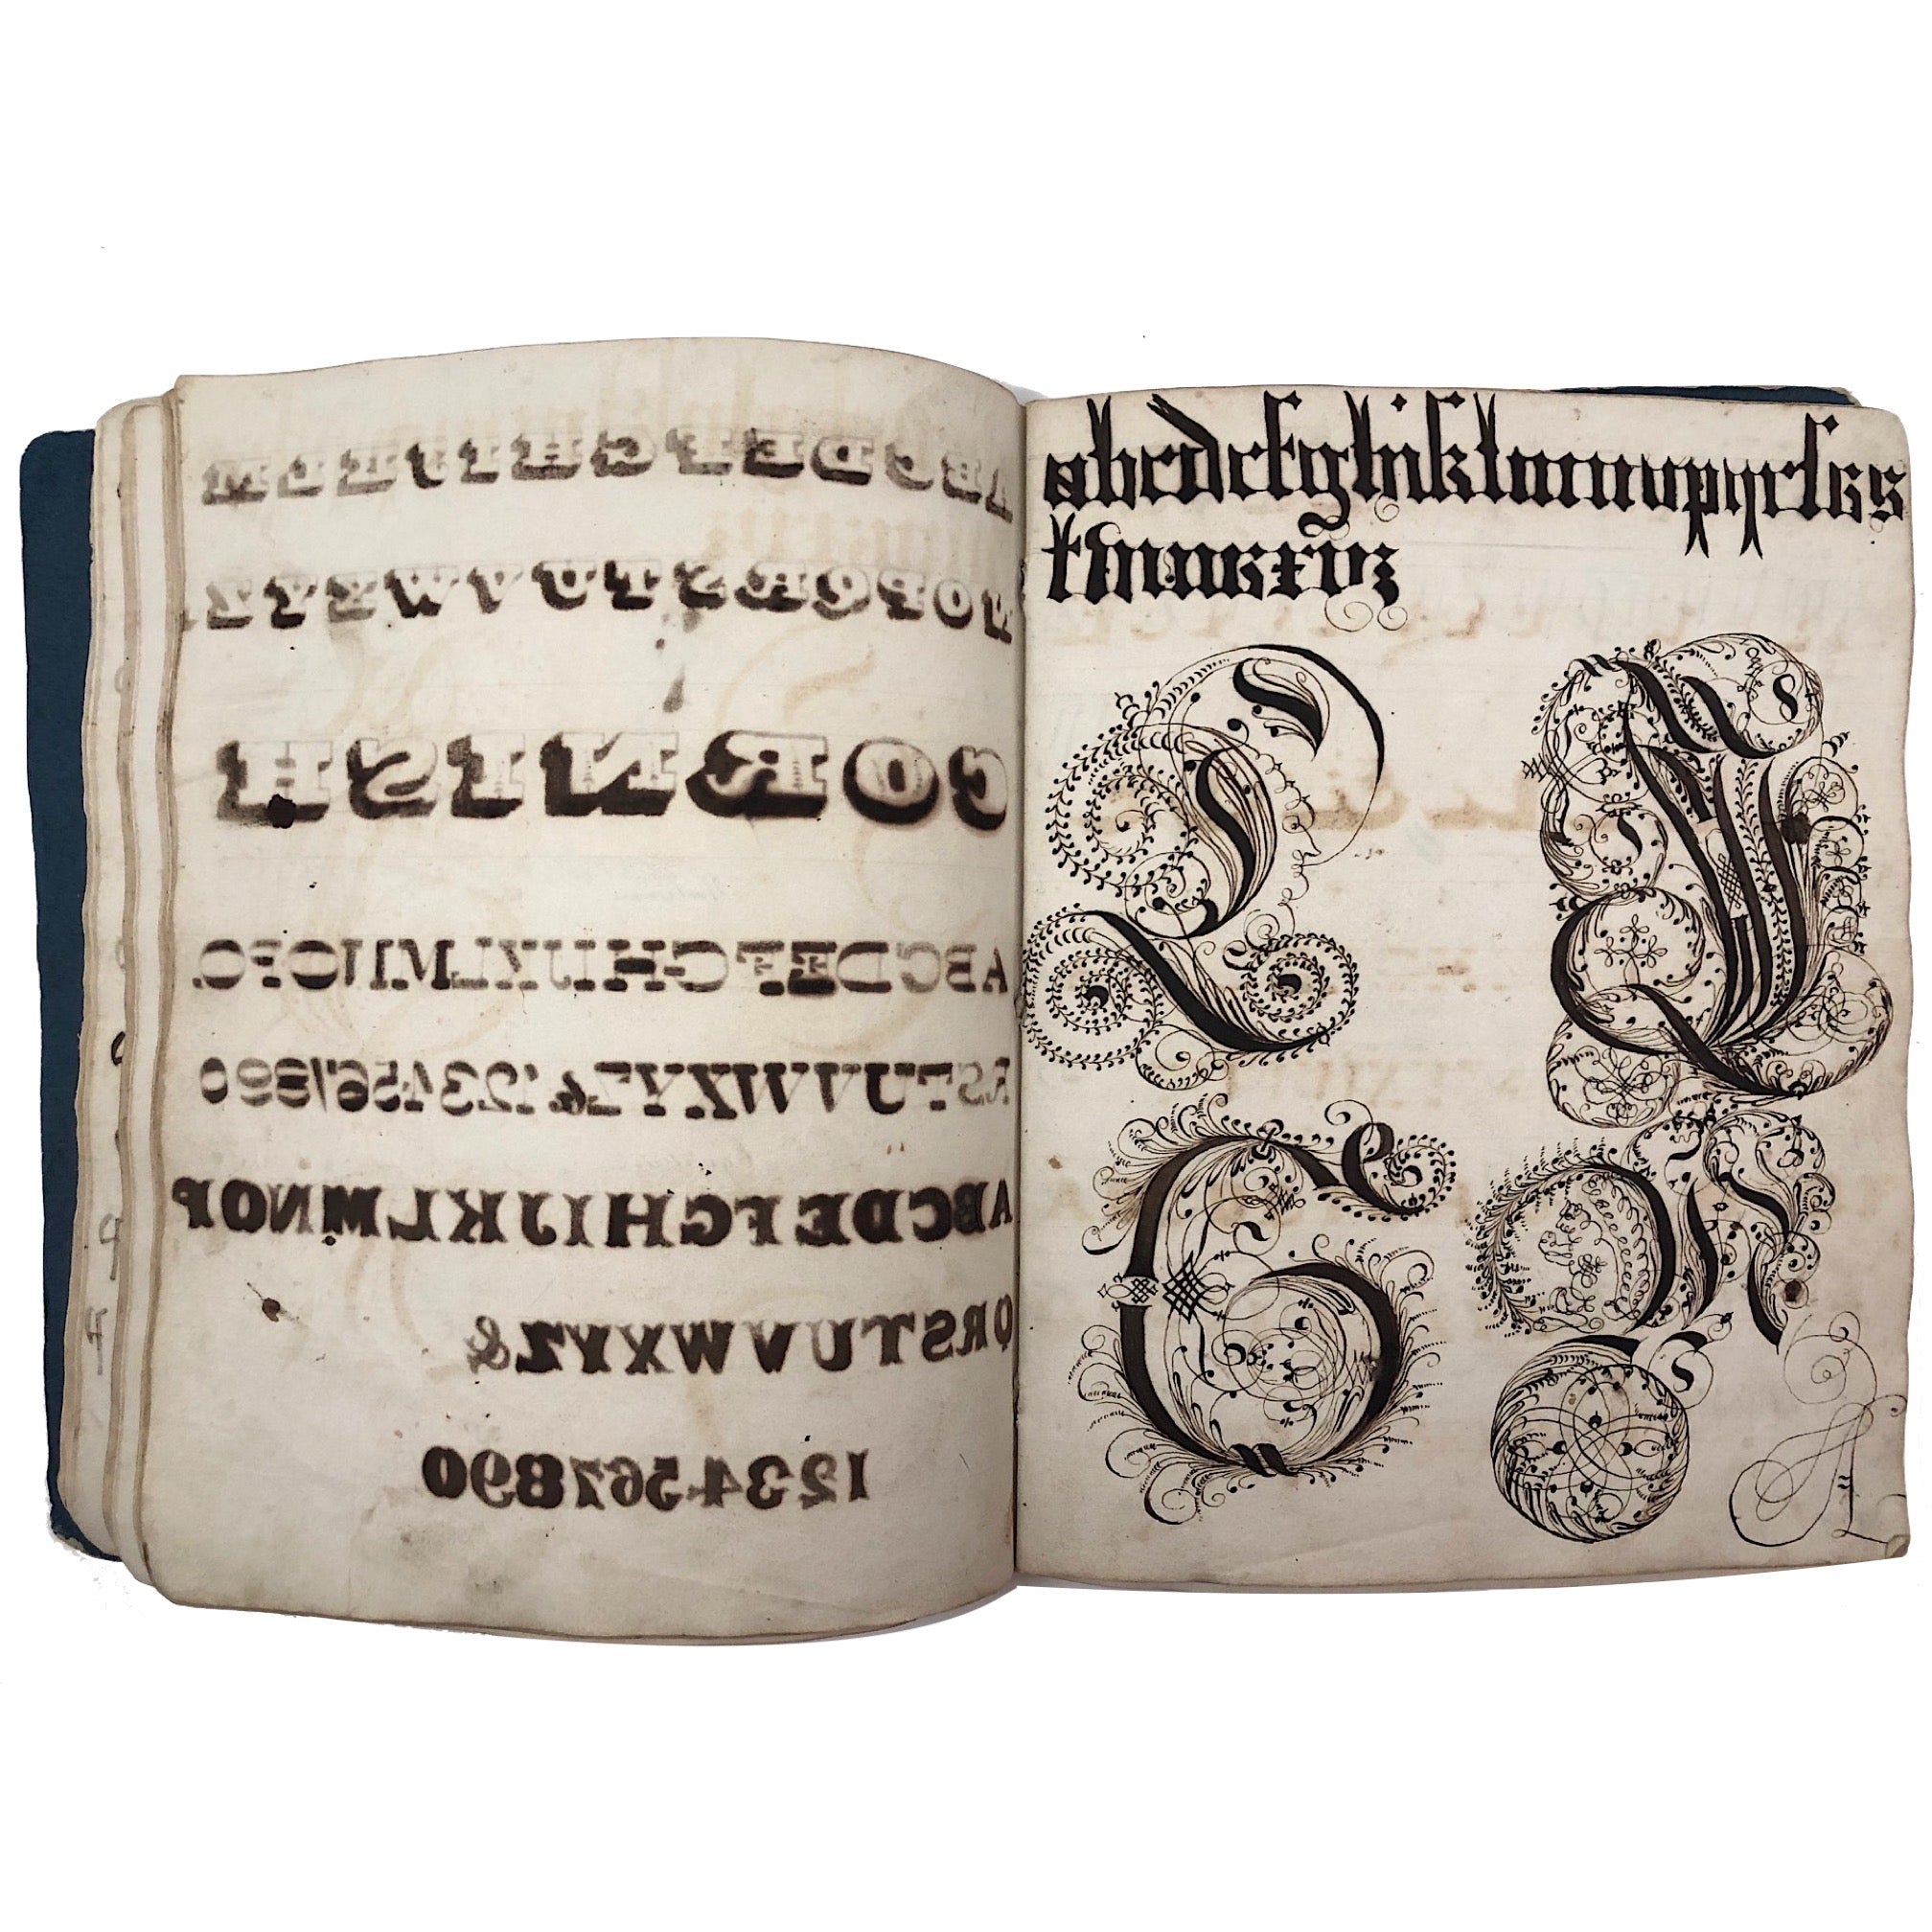 ABCDEFGHIJKLM
NOPQRSTUVWXYZ
CORNISH
ABCDEFGHIJKLMNOPQ
RSTUVWXYZ & 1234567890
ABCDEFGHIJKLMNOP
QRSTUVWXYZ&
1234567890
abcdefghiklmnopqrſss
L
G
A